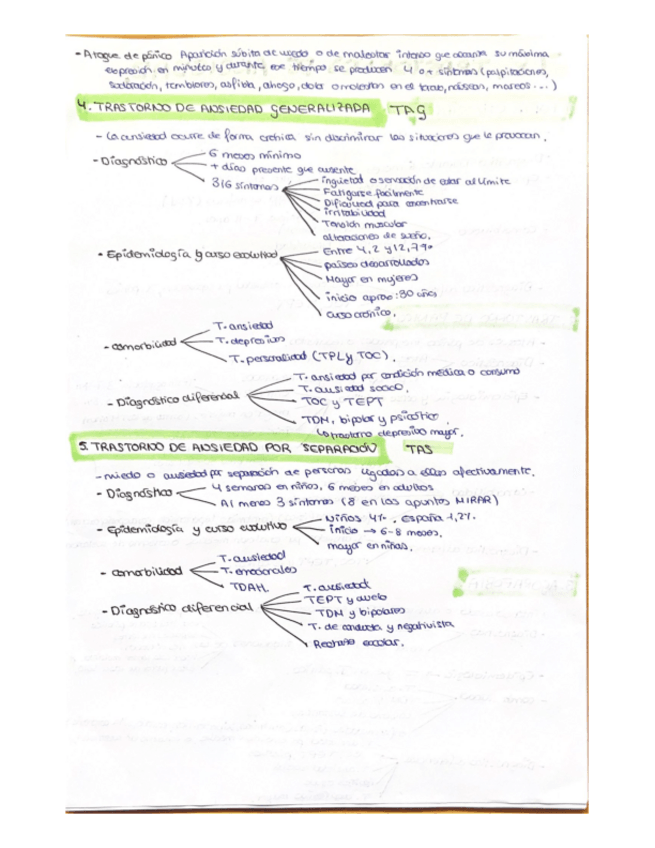 - Ataque de pánico Aparición súbita de miedo o de malestar intenso que alcanza su máxima
expresión en minutos y durante ese tiempo se producen 4 o + síntomas (palpitaciones,
sudoración, temblores, asfixia, ahogo, dolor o molestias en el tórax, náuseas, mareos...)
4. TRASTORNO DE ANSIEDAD GENERALIZADA TAG
- La ansiedad ocurre de forma crónica sin discriminar las situaciones que le provocan.
- Diagnóstico
6 meses mínimo
+ días presente que ausente
3/6 síntomas
inquietud o sensación de estar al límite
Fatigarse fácilmente
Dificultad para concentrarse
irritabilidad
Tensión muscular
alteraciones de sueño.
- Epidemiología y curso evolutivo
Entre 4,2 y 12,7%
países desarrollados
Mayor en mujeres
inicio aprox: 30 años
curso crónico.
- comorbilidad
T. ansiedad
T. depresivos
T. personalidad (TPL y TOC).
- Diagnóstico diferencial
T. ansiedad por condición médica o consumo
T. ansiedad social.
TOC y TEPT
TDM, bipolar y psicótico
trastorno depresivo mayor.
5. TRASTORNO DE ANSIEDAD POR SEPARACIÓN TAS
- miedo o ansiedad por separación de personas ligadas a ellos afectivamente.
- Diagnóstico
4 semanas en niños, 6 meses en adultos
Al menos 3 síntomas (8 en los apuntes MIRAR)
- Epidemiología y curso evolutivo
Niños 4%, España 1,2%.
inicio → 6-8 meses.
mayor en niñas.
- comorbilidad
T. ansiedad
T. emocionales
TDAH.
- Diagnóstico diferencial
T. ansiedad
TEPT y duelo
TDM y bipolares
T. de conducta y negativista
Rechazo escolar.